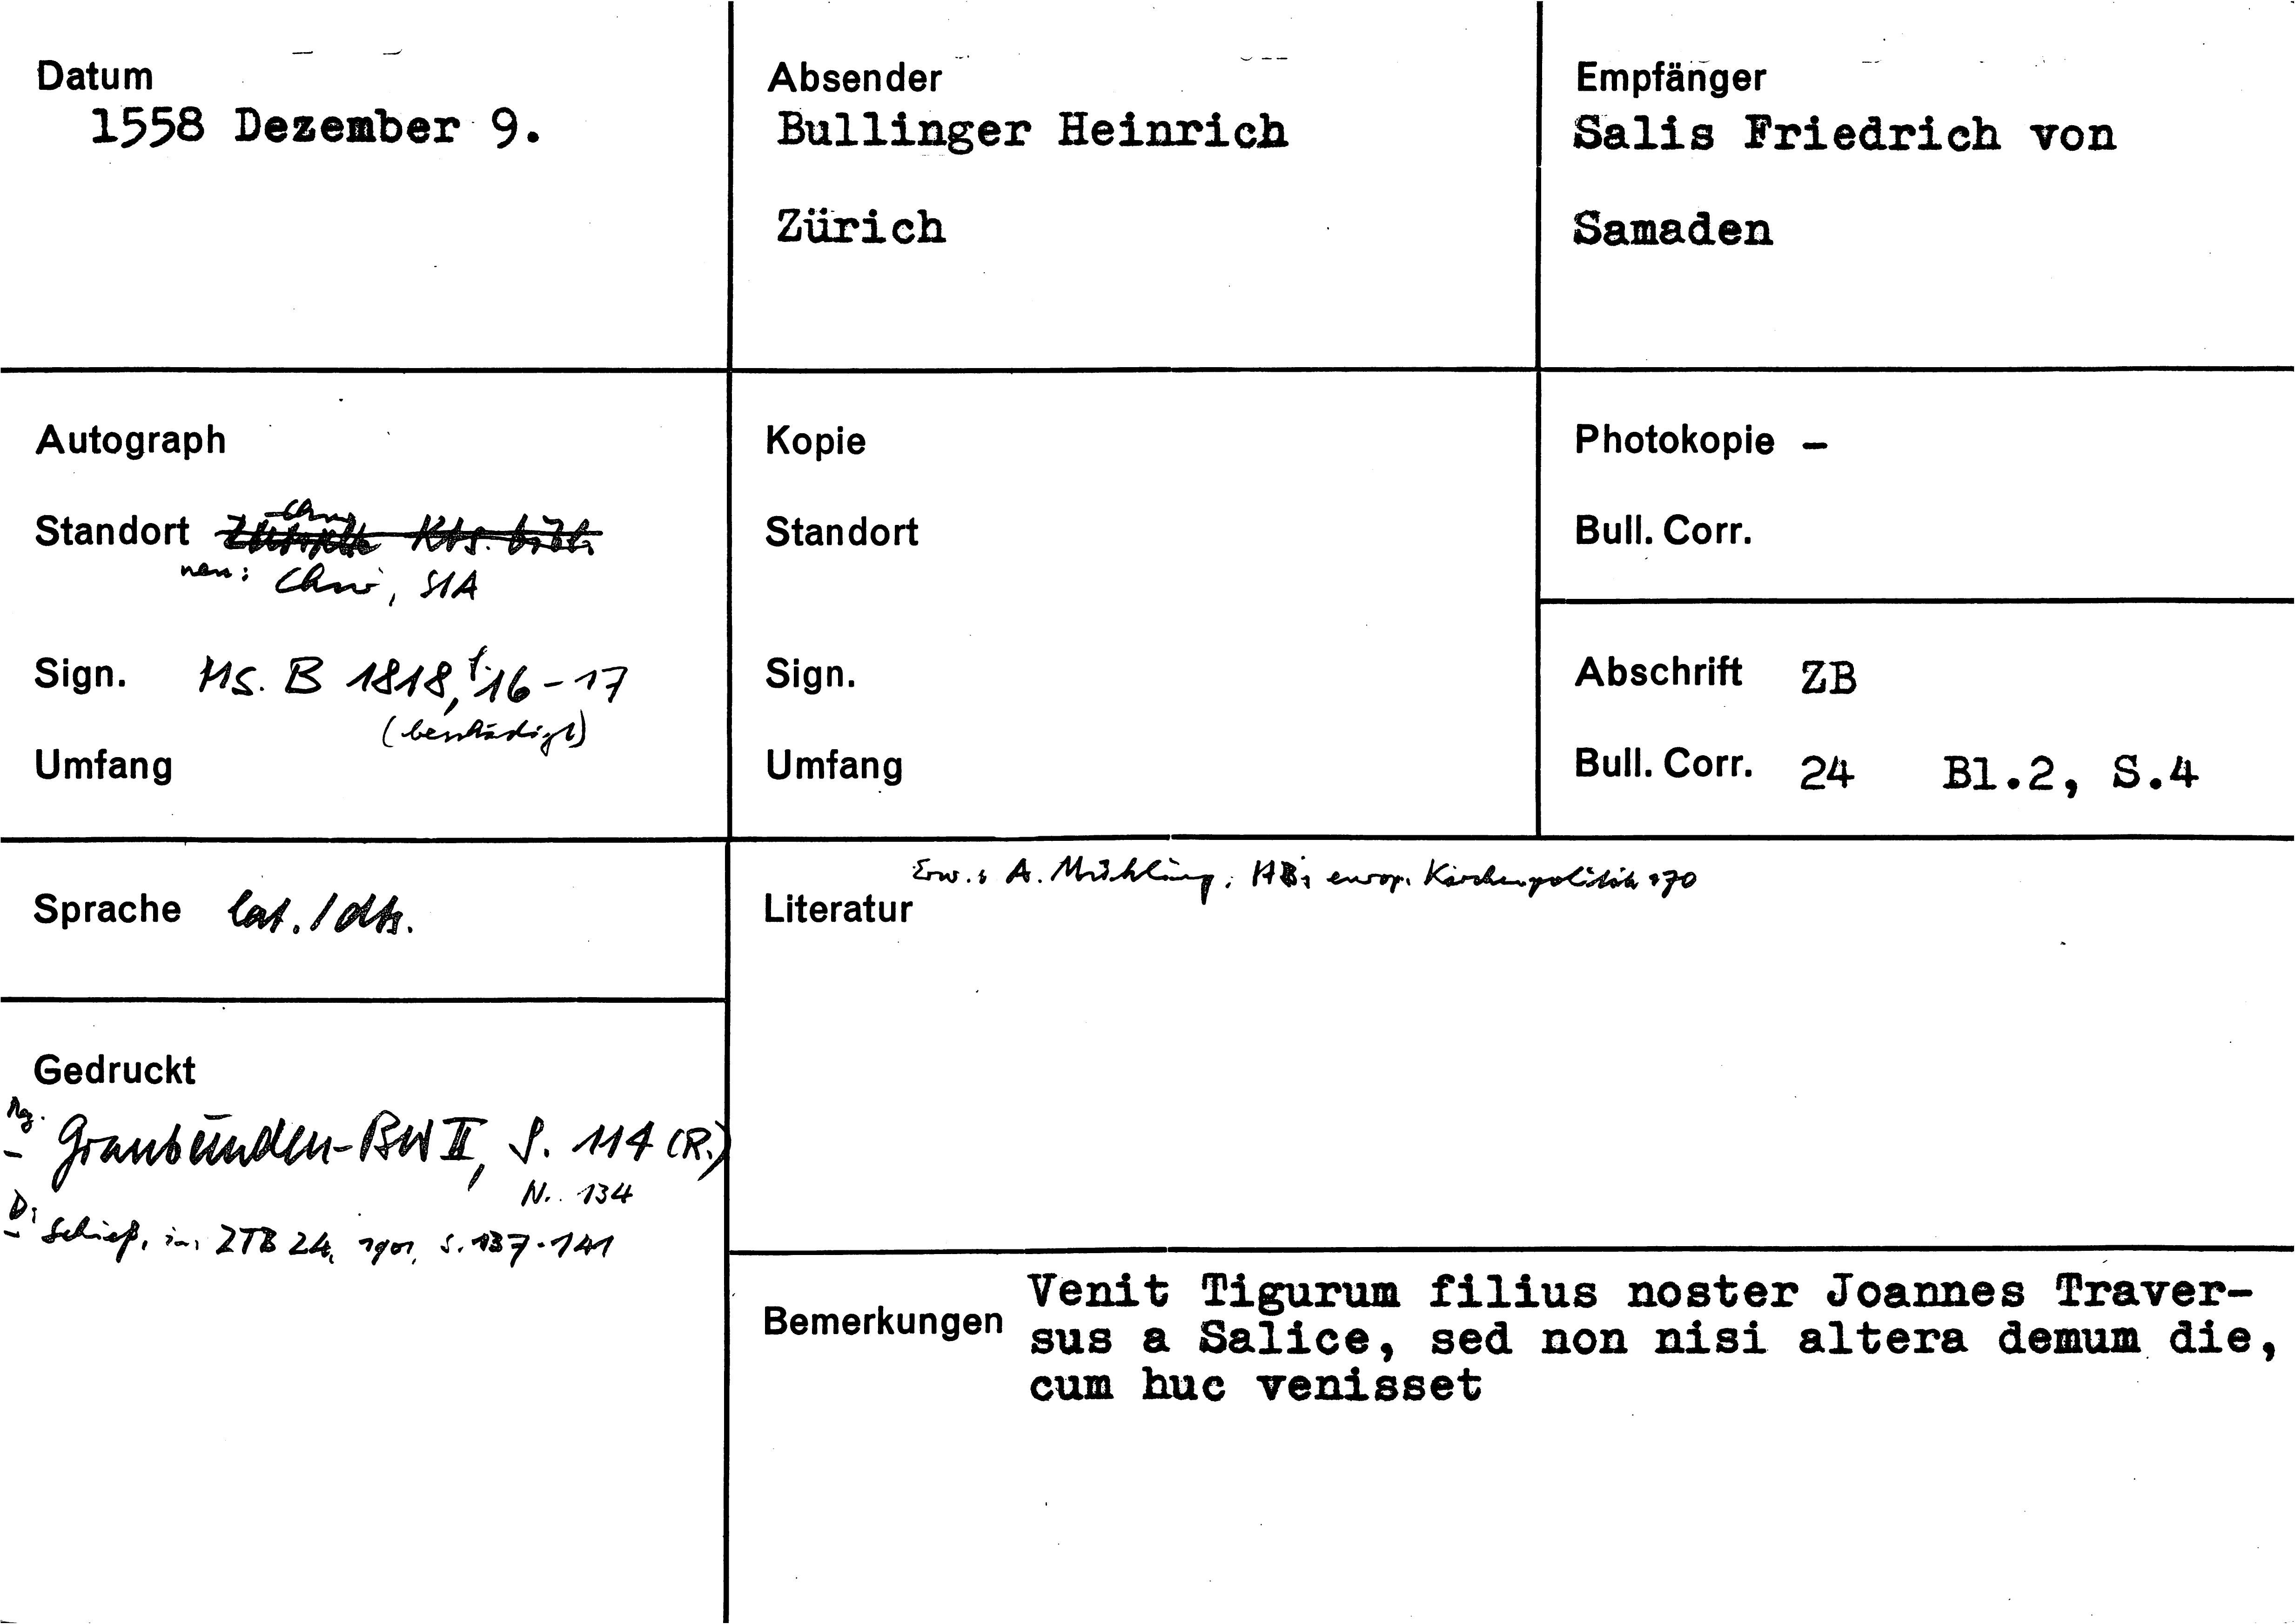 Datum
1558 Dezember 9.
Absender
Bullinger Heinrich
Zürich
Empfänger
Salis Friedrich von
Samaden
Autograph
Standort Kts. bibl.
neu: Chur, StA
Sign. Ms. B 1818, f. 16-17
(beschädigt)
Umfang
Kopie
Standort
Sign.
Umfang
Photokopie -
Bull. Corr.
Abschrift ZB
Bull. Corr. 24 Bl.2, S.4
Sprache lat./dts.
Erw.: A. Mühling, HBs europ. Kirchenpolitik 270
Literatur
Gedruckt
Rg. Graubünden-BW II, S. 114 (R.)
N. 134
D: Schieß, in: ZTB 24, 1901, S. 137-141
Bemerkungen
Venit Tigurum filius noster Joannes Traver-
sus a Salice, sed non nisi altera demum die,
cum huc venisset